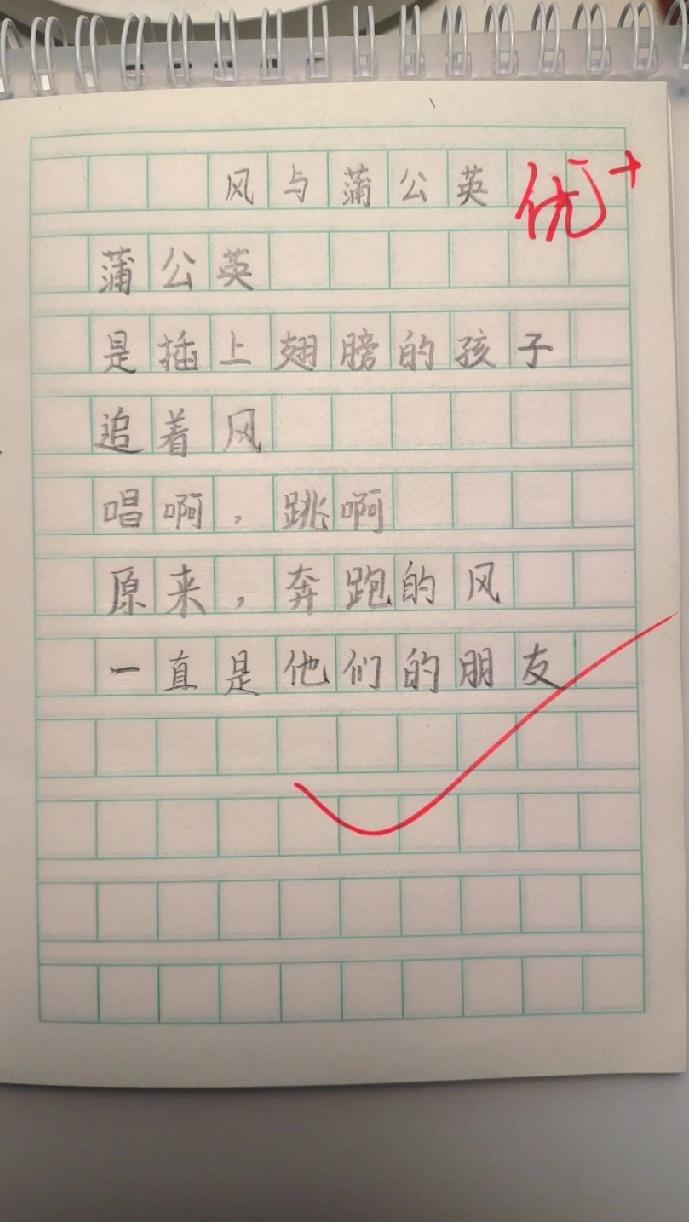 风与蒲公英 优+
蒲公英
是插上翅膀的孩子
追着风
唱啊，跳啊
原来，奔跑的风
一直是他们的朋友